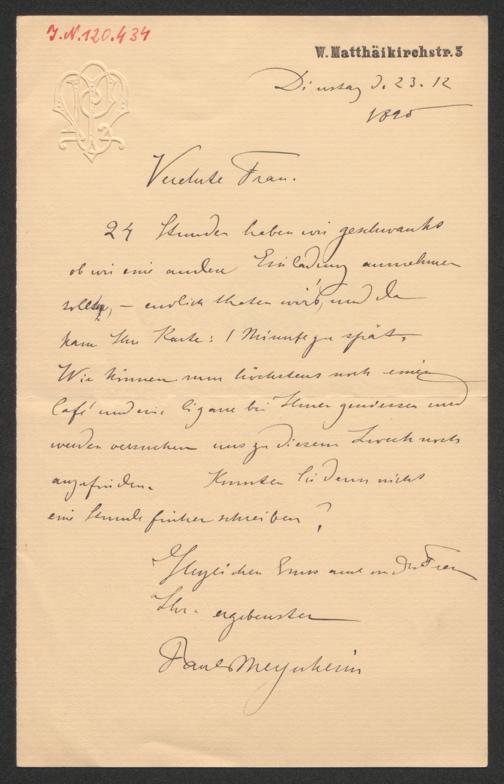 J.N. 120.434
W. Matthäikirchstr. 5
Dienstag d. 23. 12
1895
Verehrte Frau.
24 Stunden haben wir geschwankt
ob wir eine andere Einladung annehmen
sollten, – endlich thaten wir's, und da
kam Ihr Karte: 1 Minute zu spät.
Wir können nun höchstens noch einen
Café und eine Cigarre bei Ihnen geniessen und
werden versuchen uns zu diesem Zweck noch
anzufinden. Konnten Sie denn nicht
eine Stunde früher schreiben?
Herzlichen Gruss auch von der Frau
Ihr ergebenster
Paul Meyerheim